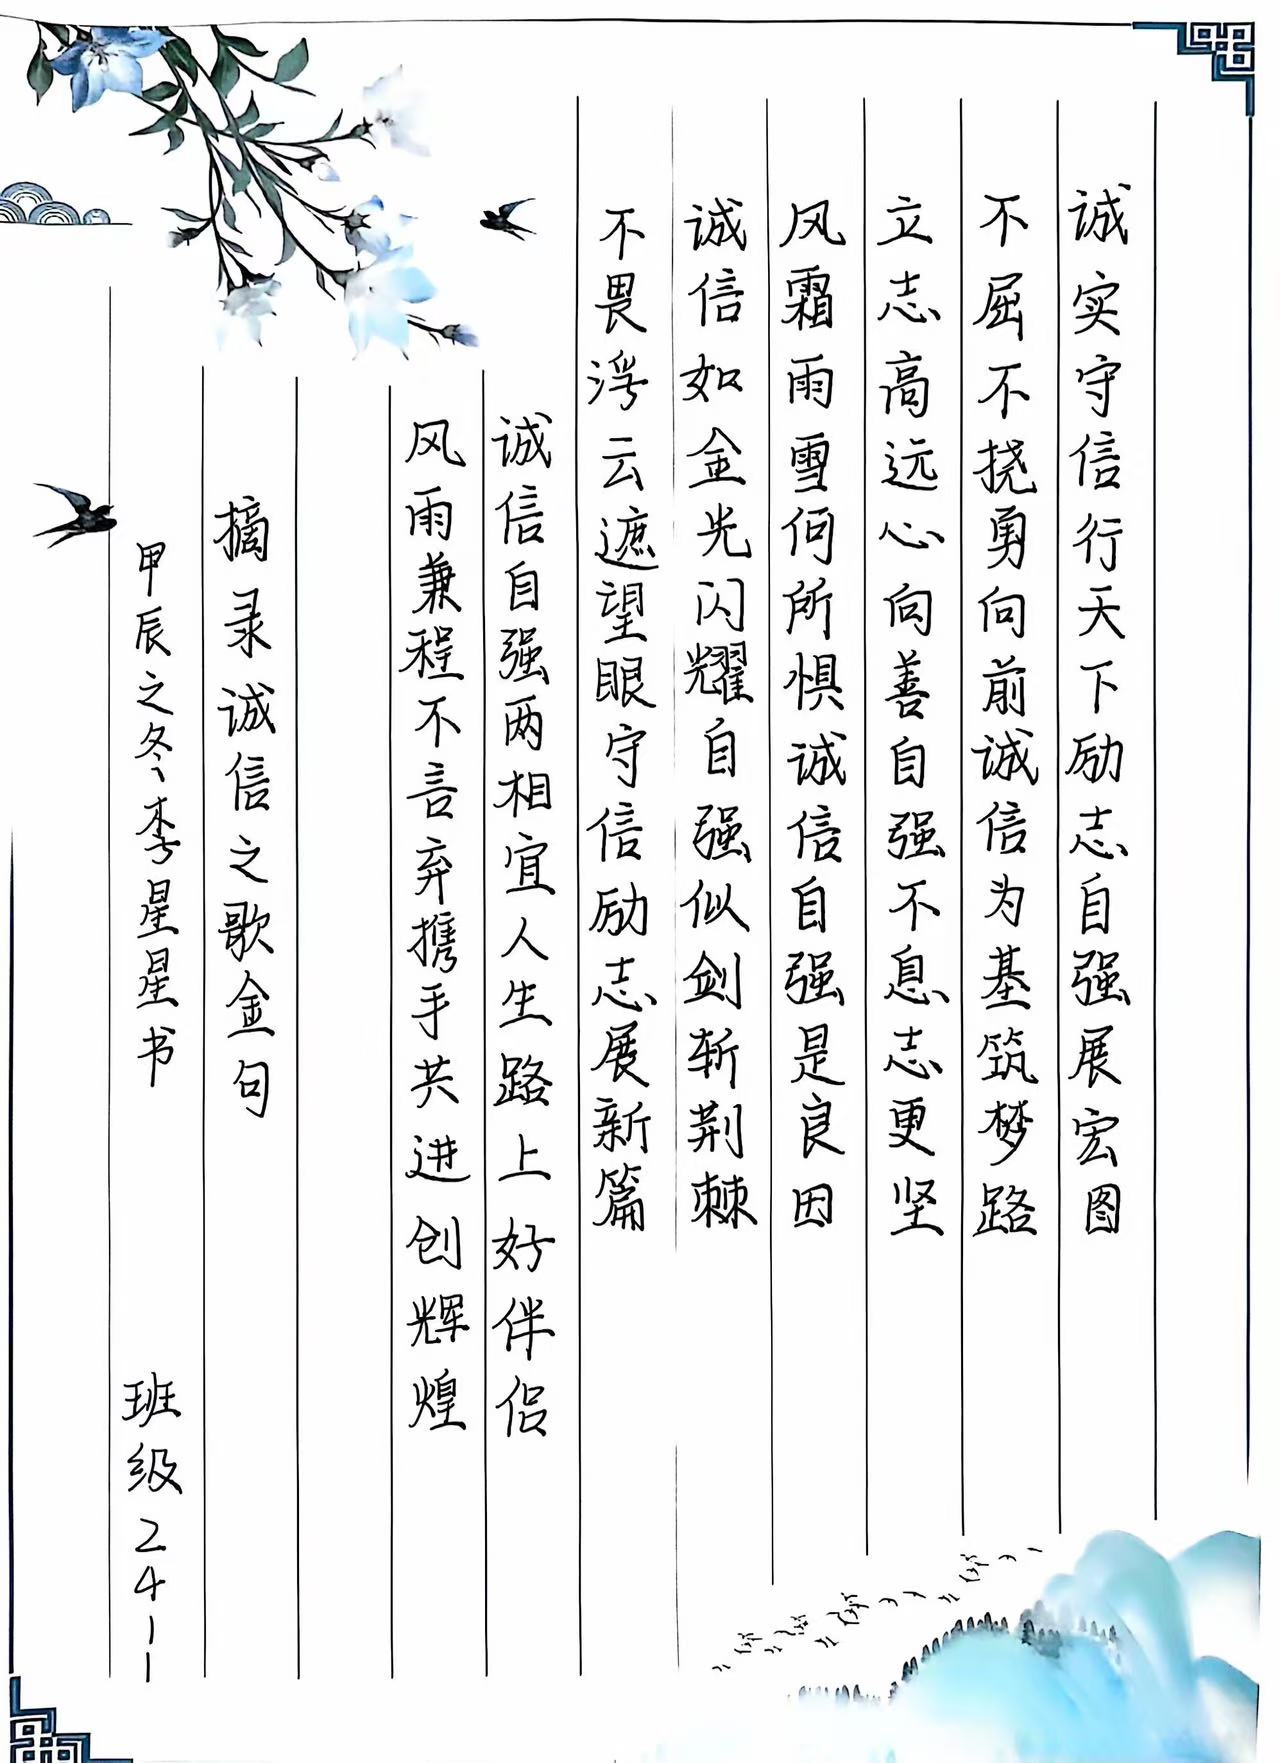 诚实守信行天下励志自强展宏图
不屈不挠勇向前诚信为基筑梦路
立志高远心向善自强不息志更坚
风霜雨雪何所惧诚信自强是良因
诚信如金光闪耀自强似剑斩荆棘
不畏浮云遮望眼守信励志展新篇
诚信自强两相宜人生路上好伴侣
风雨兼程不言弃携手共进创辉煌
摘录诚信之歌金句
甲辰之冬李星星书 班级24-1